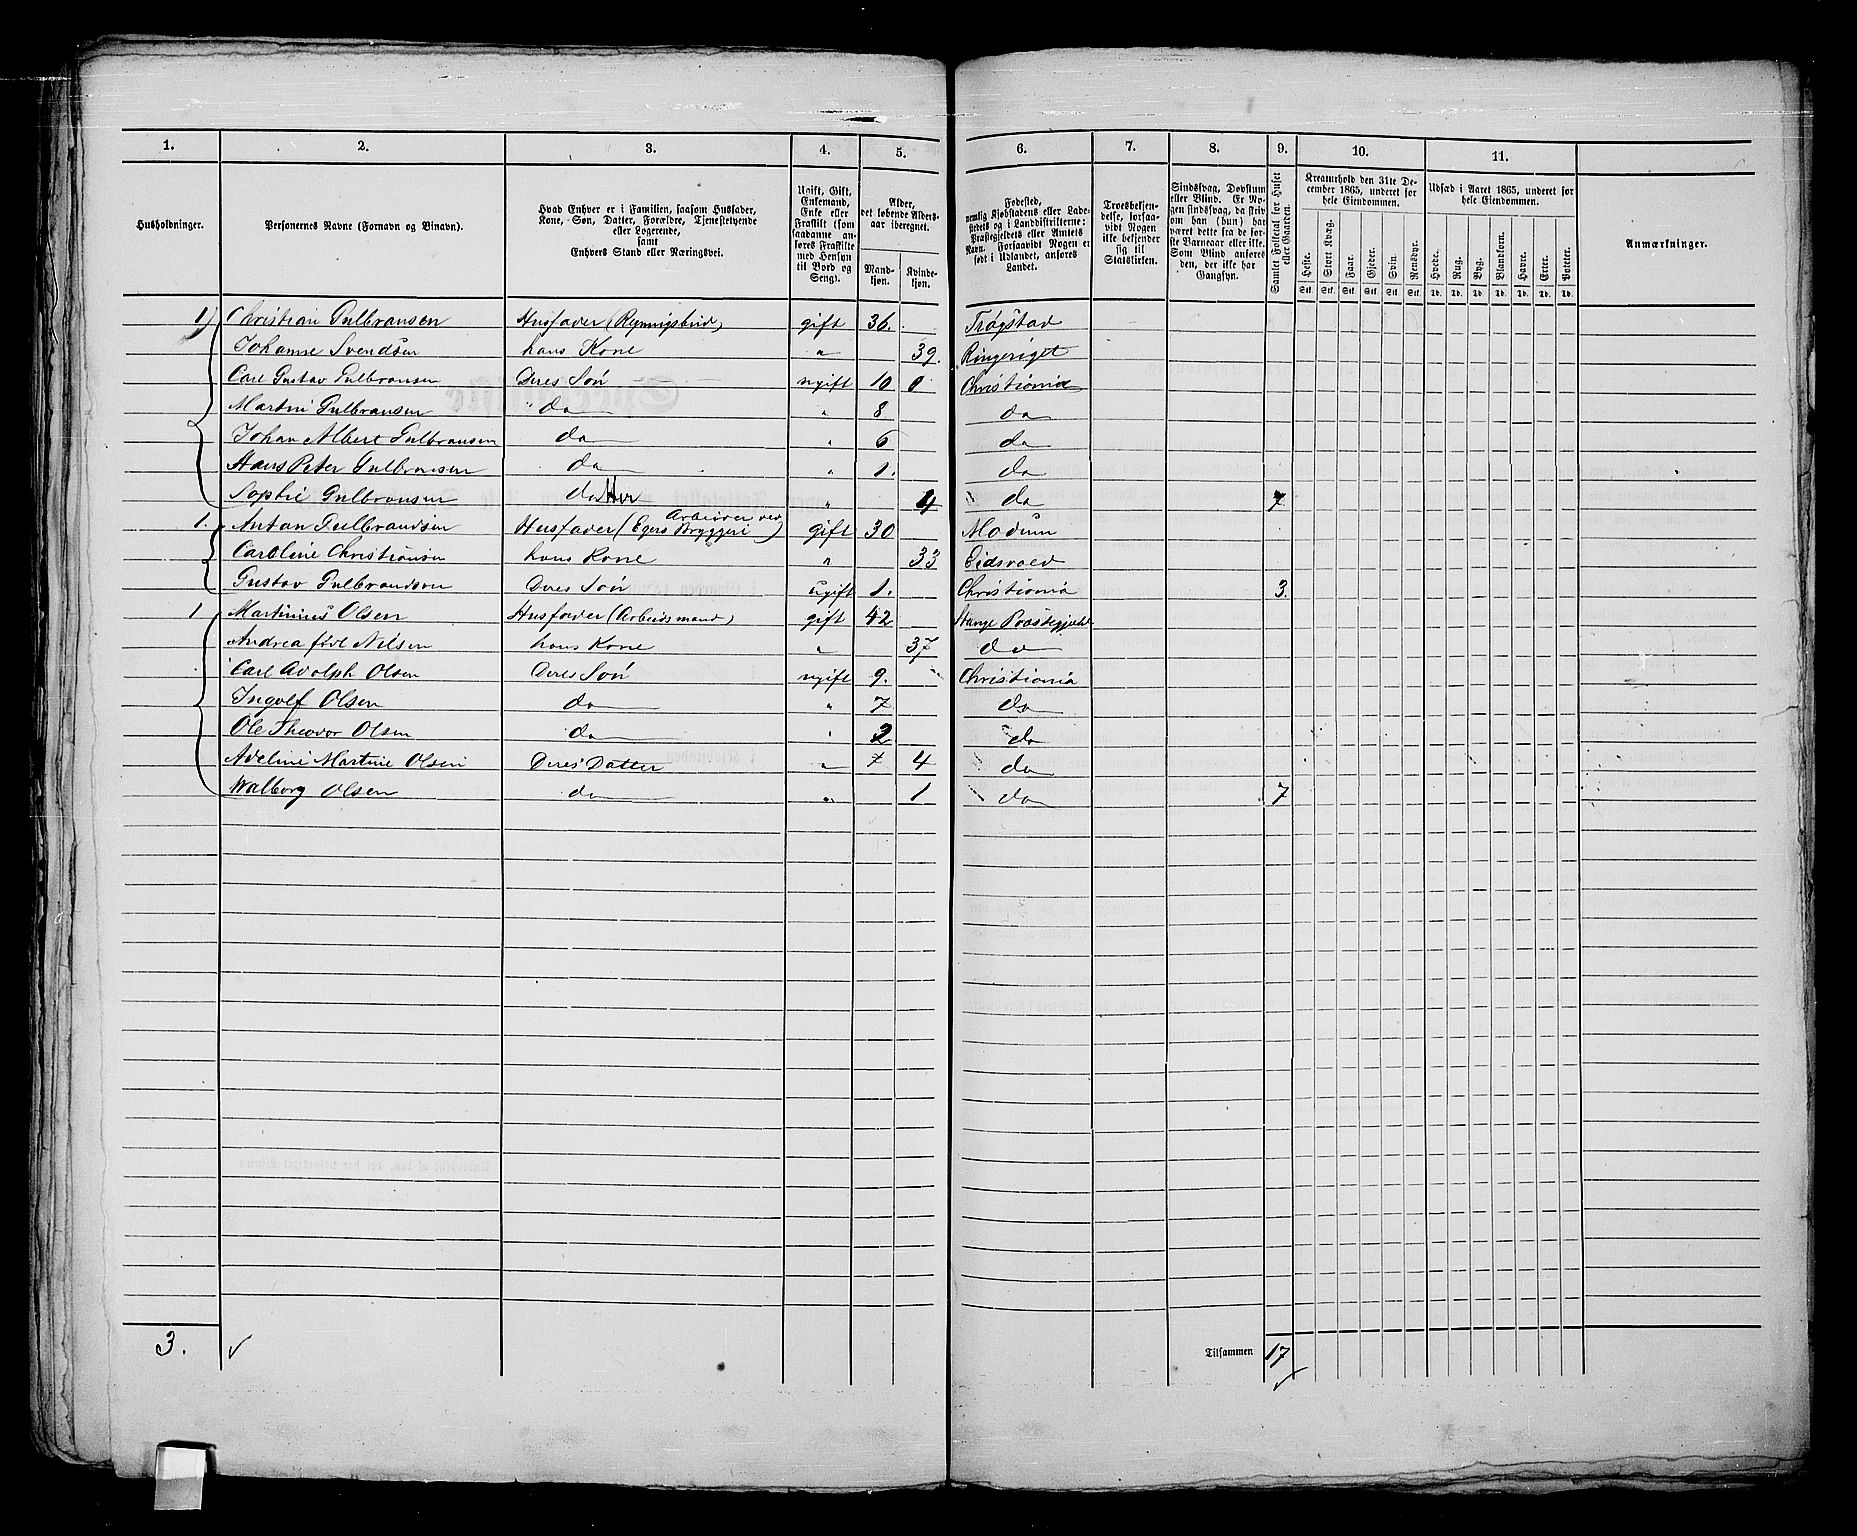 1. 2. 3. 4. 5. 6. 7. 8. 9. 10. 11.
Husholdninger.
Personernes Navne (Fornavn og Binavn).
Hvad Enhver er i Familien, saasom Husfader,
Kone, Søn, Datter, Forældre, Tjenestetyende
eller Logerende,
samt
Enhvers Stand eller Næringsvei.
Ugift, Gift,
Enkemand,
Enke eller
Fraskilt (som
saadanne an-
føres Fraskilte
med Hensyn
til Bord og
Seng).
Alder,
det løbende Alders-
aar iberegnet.
Mand-
kjøn.
Kvinde-
kjøn.
Fødested,
nemlig Kjøbstadens eller Lade-
stedets og i Landdistrikterne:
Præstegjeldets eller Amtets
Navn. Forsaavidt Nogen er
født i Udlandet, anføres
Landet.
Troesbekjen-
delse, forsaa-
vidt Nogen
ikke bekjender
sig til
Statskirken.
Sindssvag, Døvstum
eller Blind. Er No-
gen sindssvag, da skriv
om han (hun) har
været dette fra de før-
ste Barneaar eller ikke.
Som Blind anføres
den, der ikke har
Gangsyn.
Samlet Folketal for Huset
eller Gaarden.
Kreaturhold den 31te De-
cember 1865, underet for
hele Eiendommen.
Heste. Stort Kvæg. Faar. Gjeder. Svin. Rensdyr.
Stk. Stk. Stk. Stk. Stk. Stk.
Udsæd i Aaret 1865, underet for
hele Eiendommen.
Hvede. Rug. Byg. Blandkorn. Havre. Erter. Poteter.
Td. Td. Td. Td. Td. Td. Td.
Anmærkninger.
1) Christian Gulbransen Husfader gift 36. Trøgstad
Johanne Svendsen hans Kone " 39. Ringeriget
Carl Gustav Gulbransen Deres Søn ugift 10 Christiania
Martin Gulbransen do " 8 do
Johan Albert Gulbransen do " 6 do
Hans Peter Gulbransen do " 1. do
Sophie Gulbransen datter " 4 do 7
1. Anton Gulbrandsen Husfader (Arbeider ved Egers Bryggeri) gift 30 Modum
Caroline Christiansen hans Kone " 33 Eidsvold
Gustav Gulbrandsen Deres Søn ugift 1. Christiania 3.
1. Martinius Olsen Husfader (Arbeidsmand) gift 42 Stange Præstegjeld
Andrea født Nilsen hans Kone " 37 do
Carl Adolph Olsen Deres Søn ugift 9. Christiania
Ingolf Olsen do " 7 do
Ole Theodor Olsen do " 2 do
Adeline Martine Olsen Deres Datter " 7 4 do
Walborg Olsen do " 1 do 7
3. ✓ Tilsammen 17 ✓